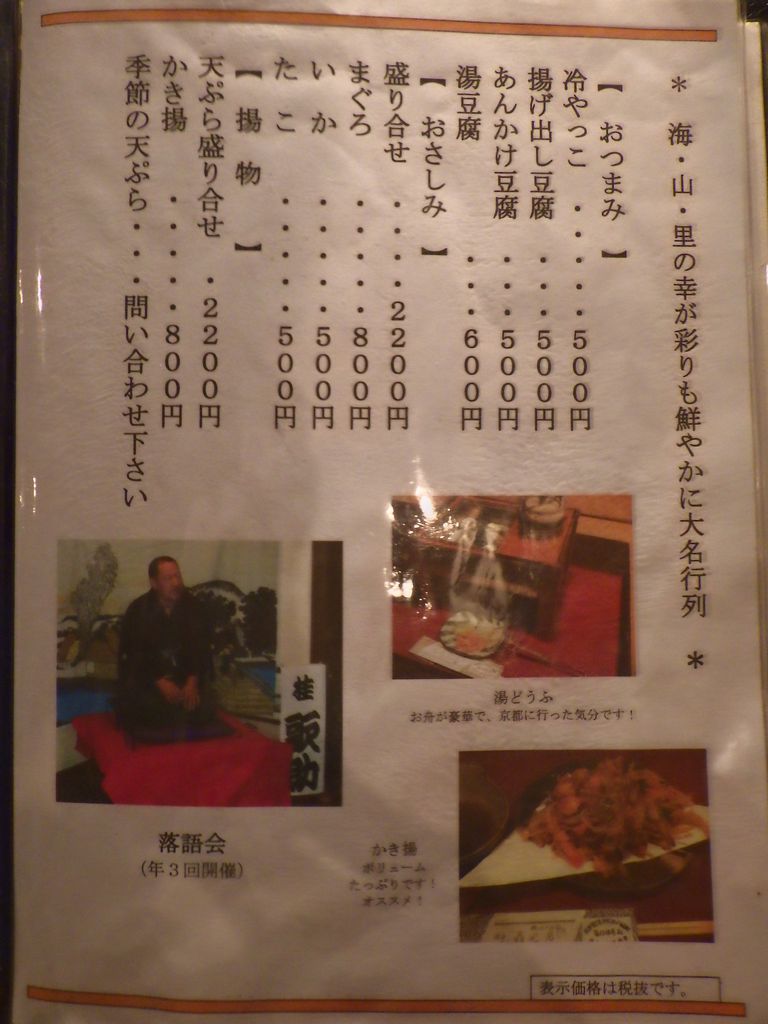 * 海・山・里の幸が彩りも鮮やかに大名行列 *
【 おつまみ 】
冷やっこ ・・・・・500円
揚げ出し豆腐 ・・・500円
あんかけ豆腐 ・・・500円
湯豆腐 ・・・600円
【 おさしみ 】
盛り合せ ・・・・2200円
まぐろ ・・・・・800円
いか ・・・・・500円
たこ ・・・・・500円
【 揚物 】
天ぷら盛り合せ ・2200円
かき揚 ・・・・・800円
季節の天ぷら・・・問い合わせ下さい
湯どうふ
お舟が豪華で、京都に行った気分です！
桂 歌助
落語会
（年３回開催）
かき揚
ボリューム
たっぷりです！
オススメ！
表示価格は税抜です。